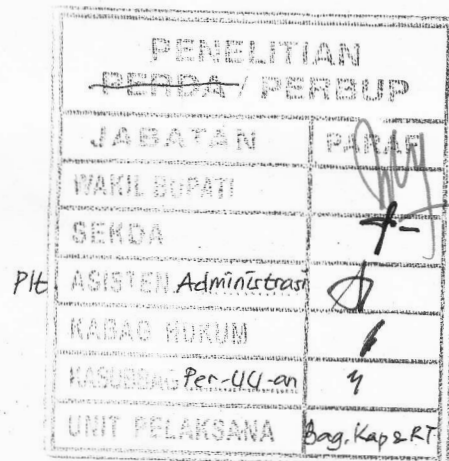 PENELITIAN
PERDA / PERBUP
JABATAN PARAF
WAKIL BUPATI
SEKDA
Plt. ASISTEN Administrasi
KABAG HUKUM
KASUBBAG Per-UU-an
UNIT PELAKSANA Bag. Kap & RT